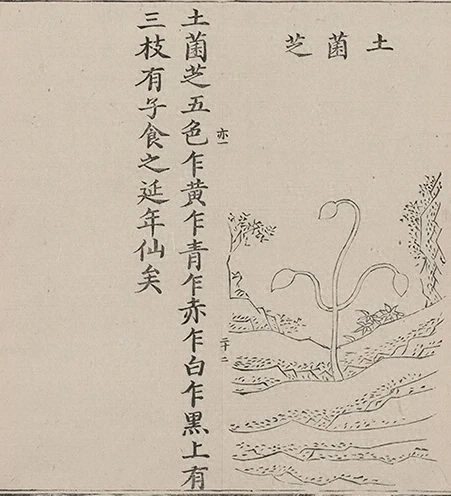 土菌芝
土菌芝五色乍黃乍青乍赤乍白乍黑上有
三枝有子食之延年仙矣
亦一
二十二